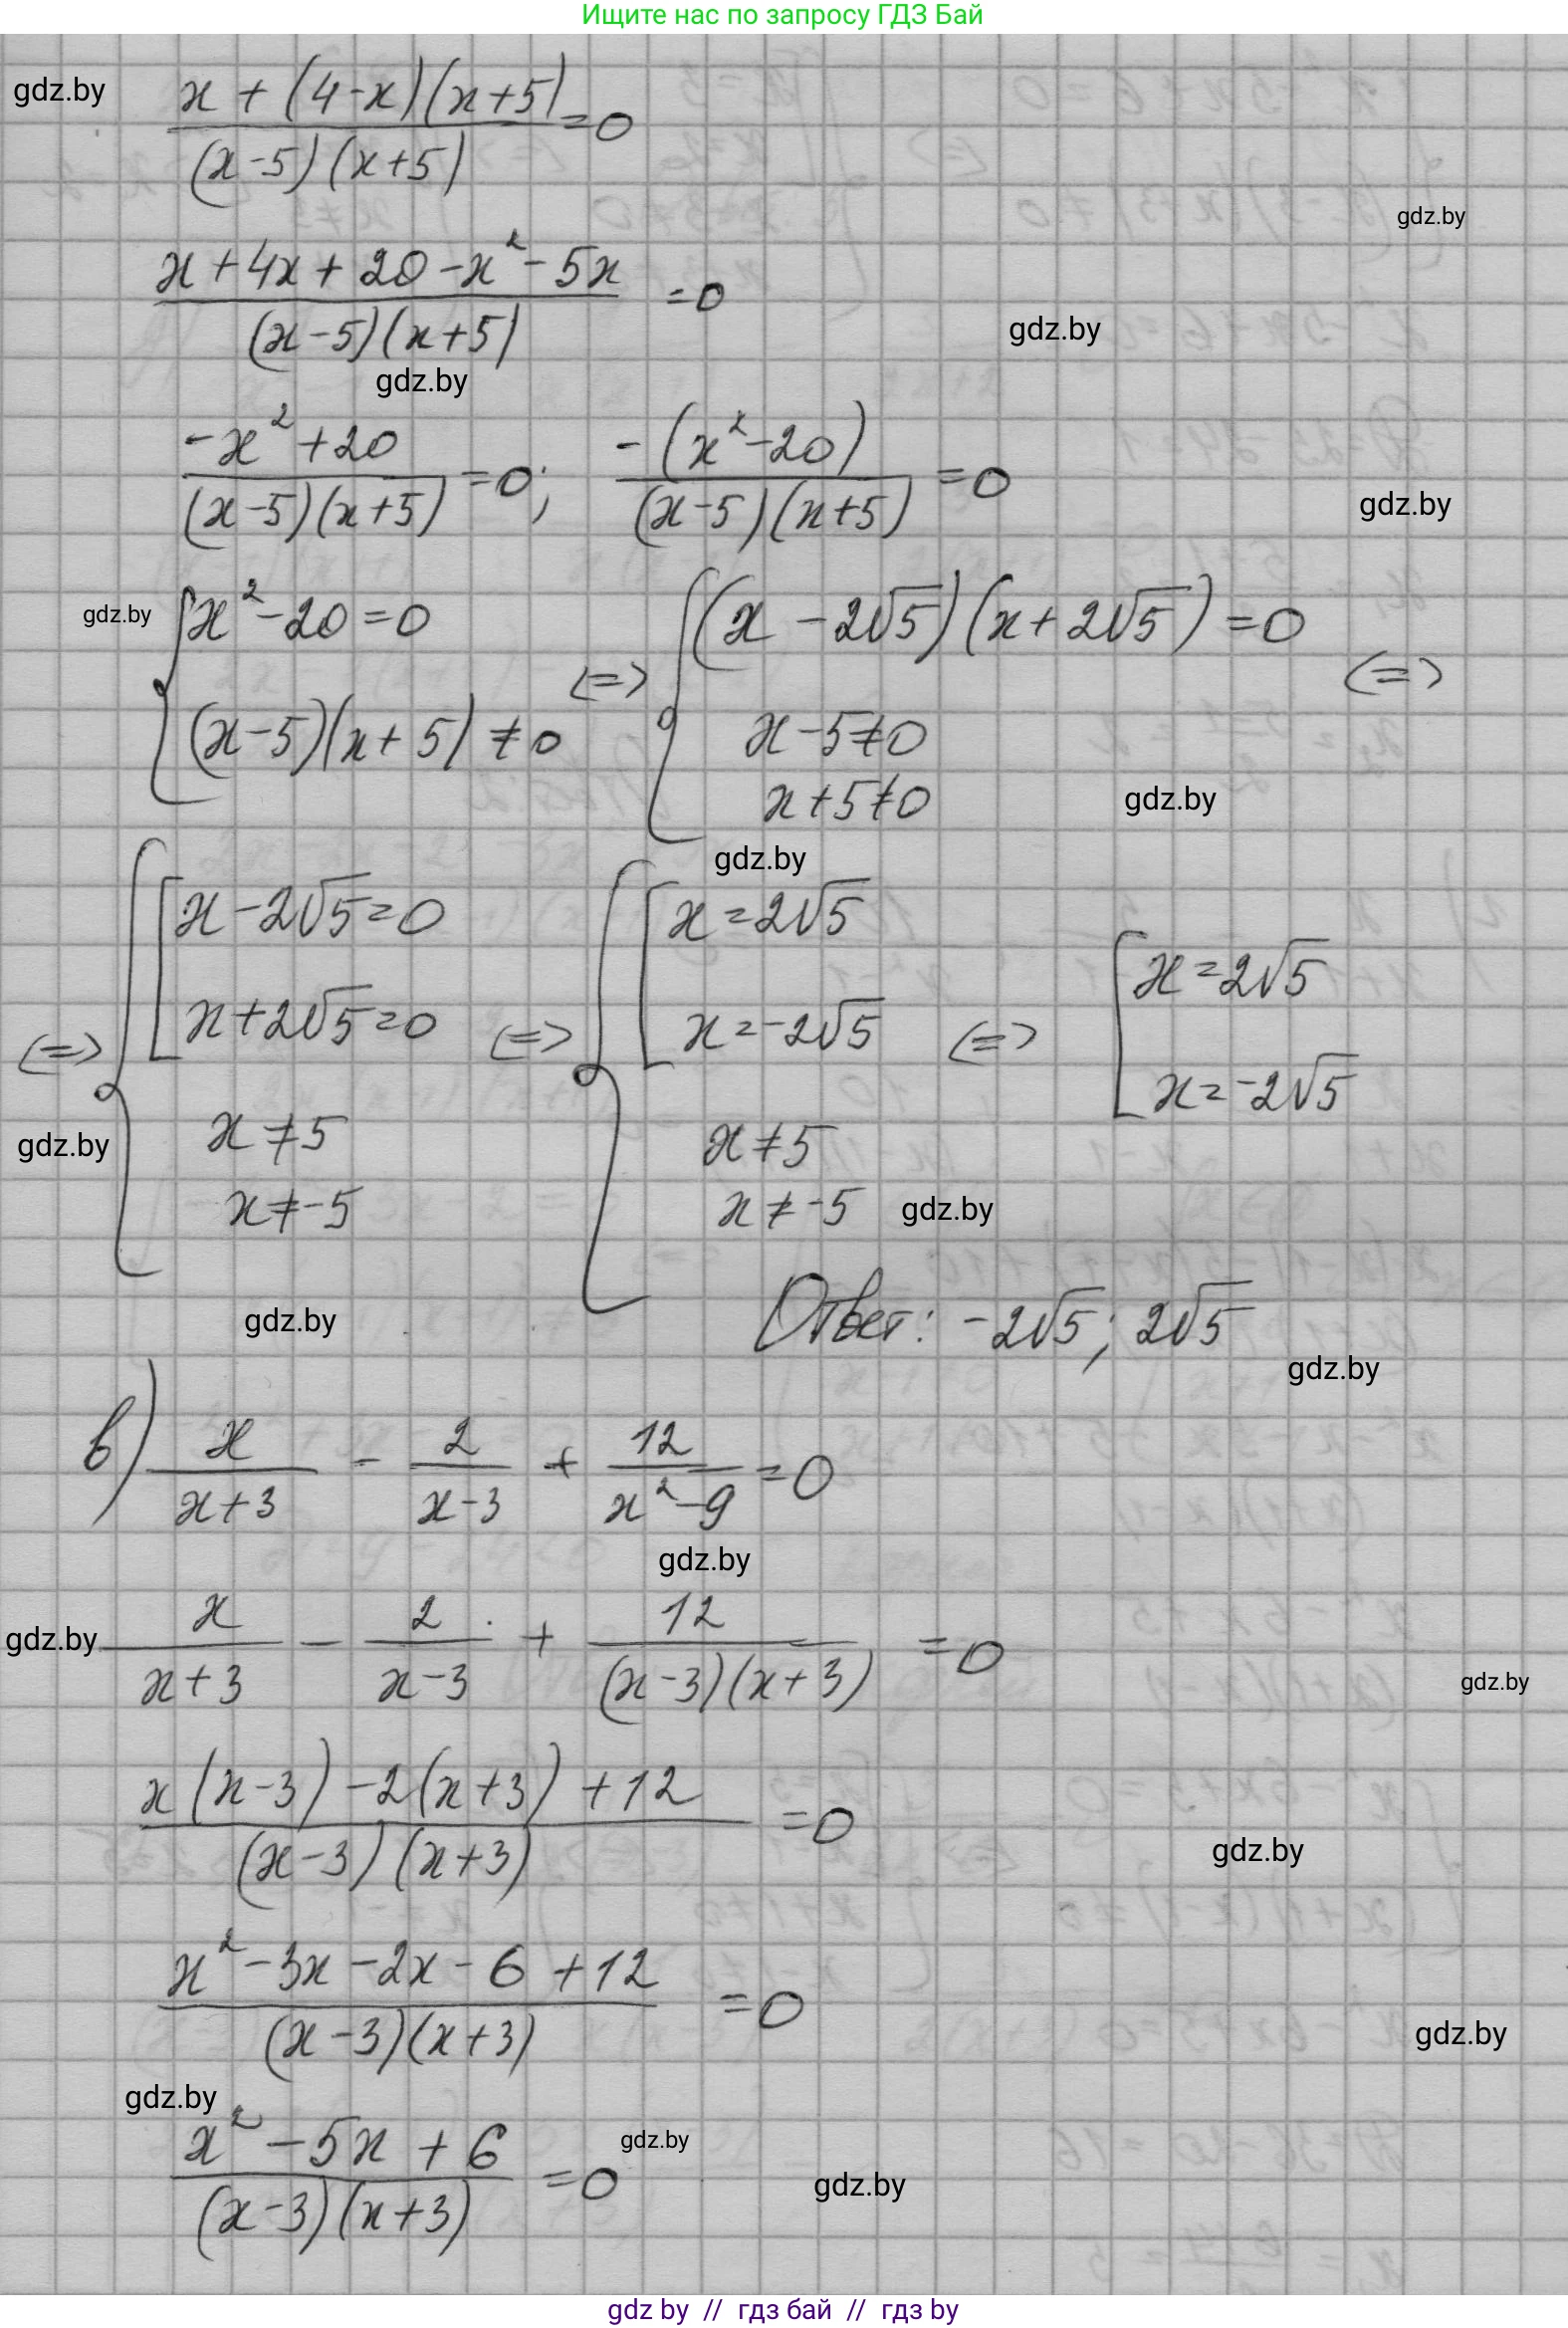 Ищите нас по запросу ГДЗ Бай
gdz.by
(x + (4-x)(x+5))/((x-5)(x+5)) = 0
gdz.by
(x + 4x + 20 - x² - 5x)/((x-5)(x+5)) = 0
gdz.by
gdz.by
(-x² + 20)/((x-5)(x+5)) = 0; (-(x² - 20))/((x-5)(x+5)) = 0
gdz.by
gdz.by
{ x² - 20 = 0
(x-5)(x+5) ≠ 0
<=> { (x - 2√5)(x + 2√5) = 0
x - 5 ≠ 0
x + 5 ≠ 0
<=>
gdz.by
gdz.by
<=> { [ x - 2√5 = 0
x + 2√5 = 0
x ≠ 5
x ≠ -5
<=> { [ x = 2√5
x = -2√5
x ≠ 5
x ≠ -5
<=> [ x = 2√5
x = -2√5
gdz.by
gdz.by
Ответ: -2√5; 2√5
gdz.by
gdz.by
в) x/(x+3) - 2/(x-3) + 12/(x²-9) = 0
gdz.by
gdz.by
x/(x+3) - 2/(x-3) + 12/((x-3)(x+3)) = 0
gdz.by
(x(x-3) - 2(x+3) + 12)/((x-3)(x+3)) = 0
gdz.by
(x² - 3x - 2x - 6 + 12)/((x-3)(x+3)) = 0
gdz.by
gdz.by
(x² - 5x + 6)/((x-3)(x+3)) = 0
gdz.by
gdz.by
gdz by // гдз бай // гдз by